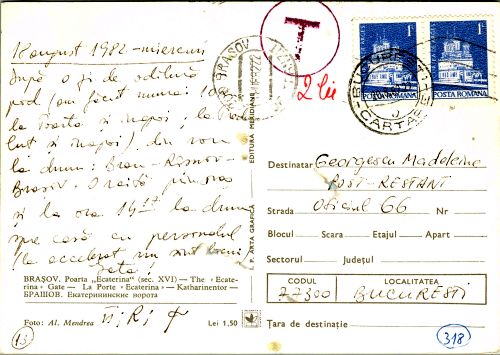 18 august 1982 - miercuri
După o zi de odihnă
pod (am făcut numai 10
la Poarta și înapoi, la
și înapoi), din nou
la drum, Bran - Rîșnov -
Brașov. O
și la ora 14 la drum
spre casă cu personalul
(la accelerat nu sunt locuri
BRAȘOV. Poarta „Ecaterina" (sec. XVI) — The „Ecate-
rina" Gate — La Porte „Ecaterina" — Katharinentor —
БРАШОВ. Екатерининские ворота
Foto: Al. Mendrea
Lei 1,50
13
EDITURA MERIDIANE
I. P. ARTA GRAFICĂ
BRAȘOV
T
2 lei
1L
POSTA ROMANA
1L
POSTA ROMANA
BUCUREȘTI
CARTARE
Destinatar Georgescu Madeleine
POST-RESTANT
Strada Oficiul 66 Nr.
Blocul Scara Etajul Apart.
Sectorul Județul
CODUL LOCALITATEA
77300 BUCUREȘTI
Țara de destinație
318